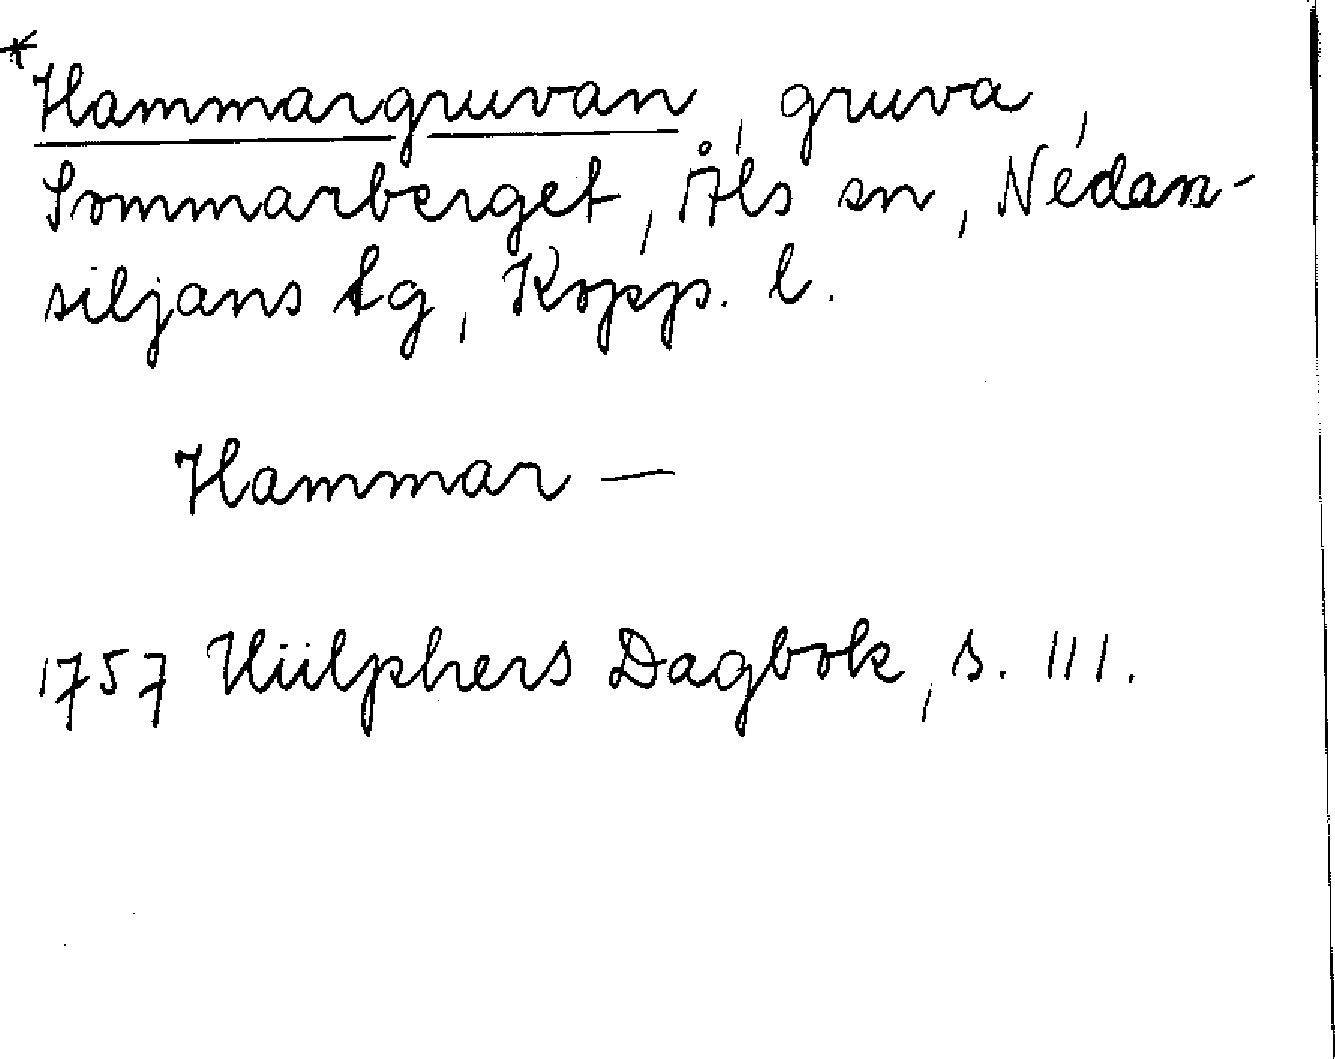 *Hammargruvan, gruva,
Sommarberget, Åls sn, Nedan-
siljans tg, Kopp. l.
Hammar —
1757 Hülphers Dagbok, s. 111.